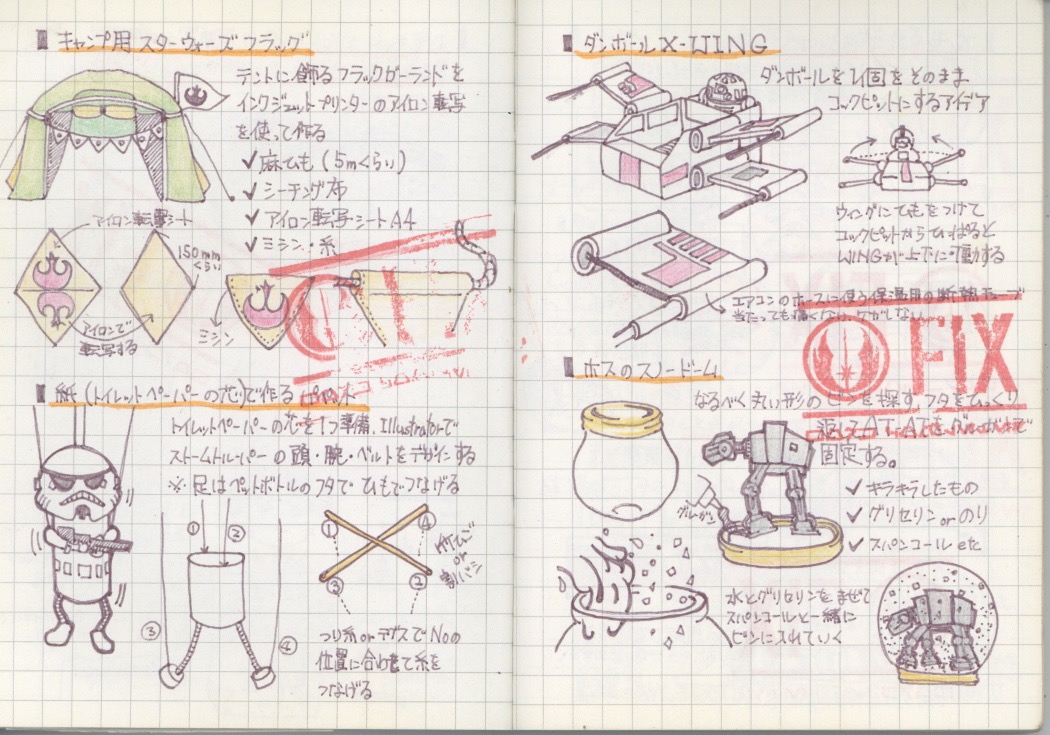 キャンプ用スターウォーズフラッグ
テントに飾るフラッグガーランドを
インクジェットプリンターのアイロン転写
を使って作る
✓麻ひも(5mくらい)
✓シーチング布
✓アイロン転写シートA4
✓ミシン・糸
アイロン転写シート
150mm
くらい
アイロンで
転写する
ミシン
紙(トイレットペーパーの芯)で作る
トイレットペーパーの芯を1つ準備、Illustratorで
ストームトルーパーの頭・腕・ベルトをデザインする
※足はペットボトルのフタでひもでつなげる
①
②
③
④
①
④
③
②
竹ひご
or
割バシ
つり糸orテグスでNoの
位置に合わせて糸を
つなげる
ダンボールX-WING
ダンボールを1個をそのまま
コックピットにするアイデア
ウィングにひもをつけて
コックピットからひっぱると
WINGが上下に可動する
エアコンのホースに使う保温用の断熱ホース
当たっても痛くない、ケガしない
FIX
ホスのスノードーム
なるべく丸い形のビンを探す、フタをひっくり
返してAT-ATをグルーガンで
固定する。
グルーガン
✓キラキラしたもの
✓グリセリンorのり
✓スパンコールetc
水とグリセリンをまぜて
スパンコールと一緒に
ビンに入れていく